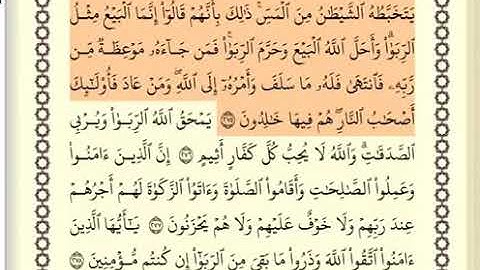 يَتَخَبَّطُهُ ٱلشَّيْطَٰنُ مِنَ ٱلْمَسِّ ۚ ذَٰلِكَ بِأَنَّهُمْ قَالُوٓا۟ إِنَّمَا ٱلْبَيْعُ مِثْلُ
ٱلرِّبَوٰا۟ ۗ وَأَحَلَّ ٱللَّهُ ٱلْبَيْعَ وَحَرَّمَ ٱلرِّبَوٰا۟ ۚ فَمَن جَآءَهُۥ مَوْعِظَةٌ مِّن
رَّبِّهِۦ فَٱنتَهَىٰ فَلَهُۥ مَا سَلَفَ وَأَمْرُهُۥٓ إِلَى ٱللَّهِ ۖ وَمَنْ عَادَ فَأُو۟لَٰٓئِكَ
أَصْحَٰبُ ٱلنَّارِ ۖ هُمْ فِيهَا خَٰلِدُونَ ٢٧٥ يَمْحَقُ ٱللَّهُ ٱلرِّبَوٰا۟ وَيُرْبِى
ٱلصَّدَقَٰتِ ۗ وَٱللَّهُ لَا يُحِبُّ كُلَّ كَفَّارٍ أَثِيمٍ ٢٧٦ إِنَّ ٱلَّذِينَ ءَامَنُوا۟
وَعَمِلُوا۟ ٱلصَّٰلِحَٰتِ وَأَقَامُوا۟ ٱلصَّلَوٰةَ وَءَاتَوُا۟ ٱلزَّكَوٰةَ لَهُمْ أَجْرُهُمْ
عِندَ رَبِّهِمْ وَلَا خَوْفٌ عَلَيْهِمْ وَلَا هُمْ يَحْزَنُونَ ٢٧٧ يَٰٓأَيُّهَا ٱلَّذِينَ
ءَامَنُوا۟ ٱتَّقُوا۟ ٱللَّهَ وَذَرُوا۟ مَا بَقِىَ مِنَ ٱلرِّبَوٰٓا۟ إِن كُنتُم مُّؤْمِنِينَ ٢٧٨